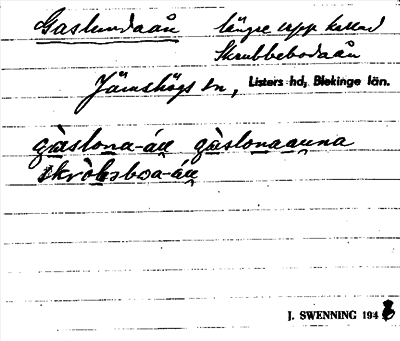 Gaslundaån längre upp kallad
Skrubbebodaån
Jämshögs sn, Listers hd, Blekinge län.
gàslona-án gàslonaanna
skròbsboa-án
J. SWENNING 1948